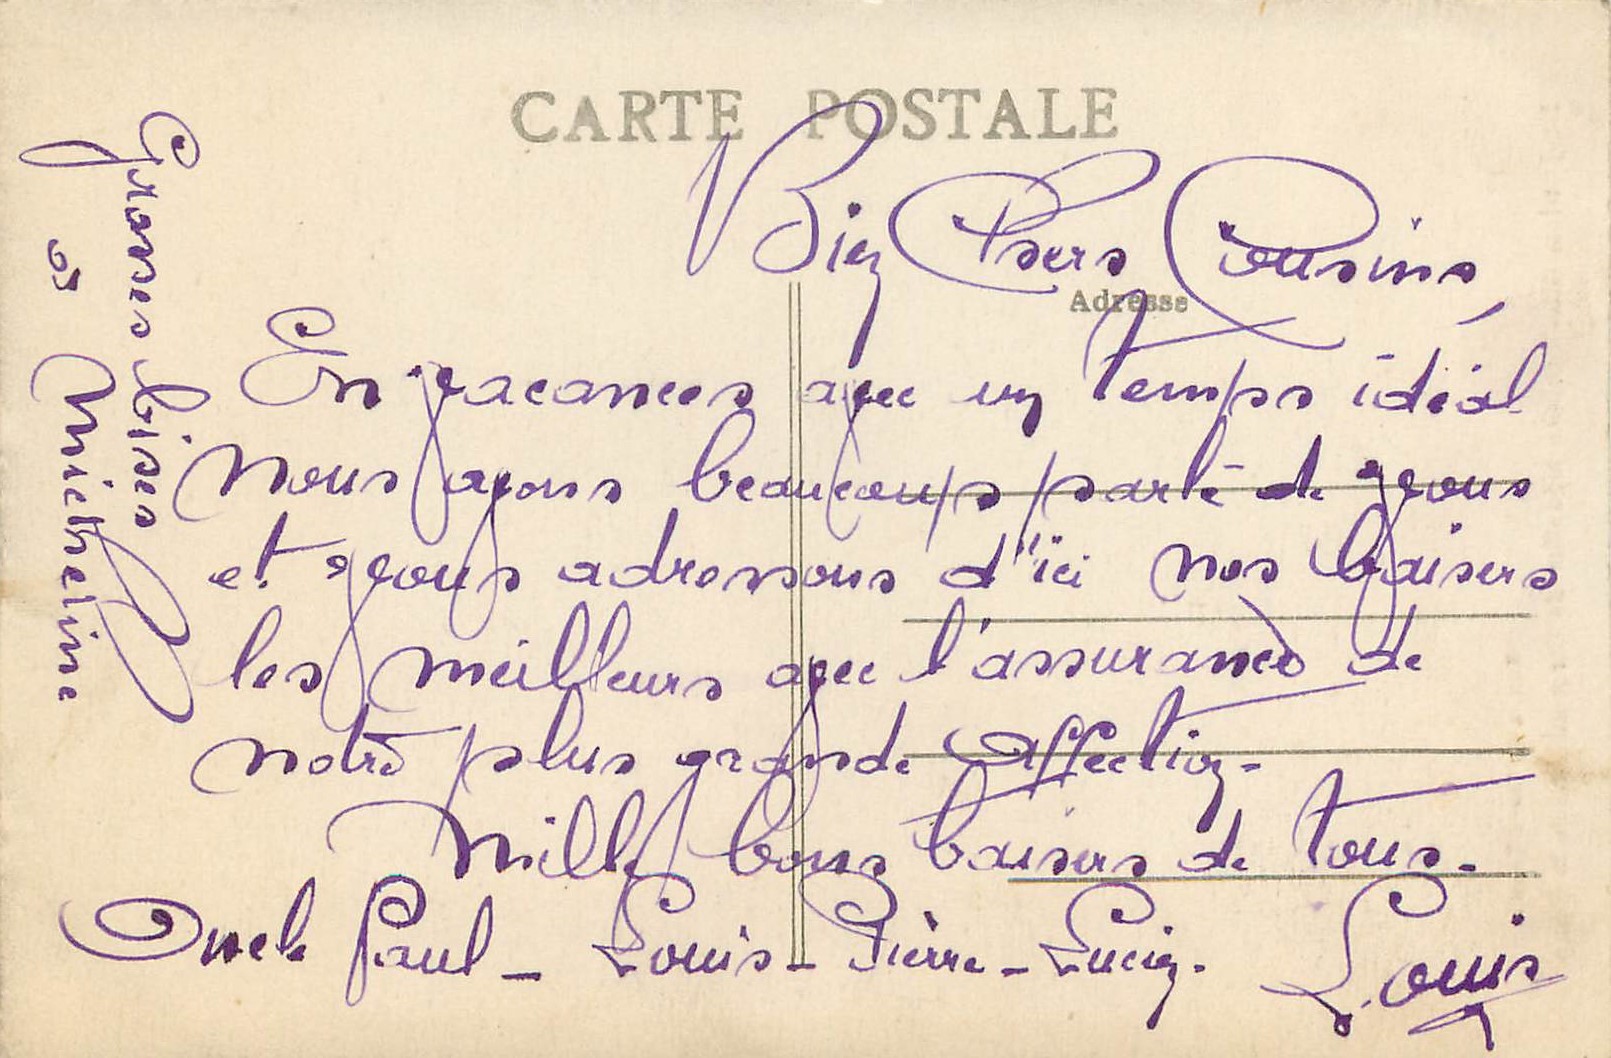 CARTE POSTALE
Bien Chers Cousins,
Adresse
En vacances avec un temps idéal
Nous avons beaucoup parlé de vous
et vous adressons d'ici nos baisers
les meilleurs avec l'assurance de
notre plus grande affection -
Mille bons baisers de tous -
Oncle Paul - Louis - Pierre - Lucien - Louis
Grosses bises
Micheline